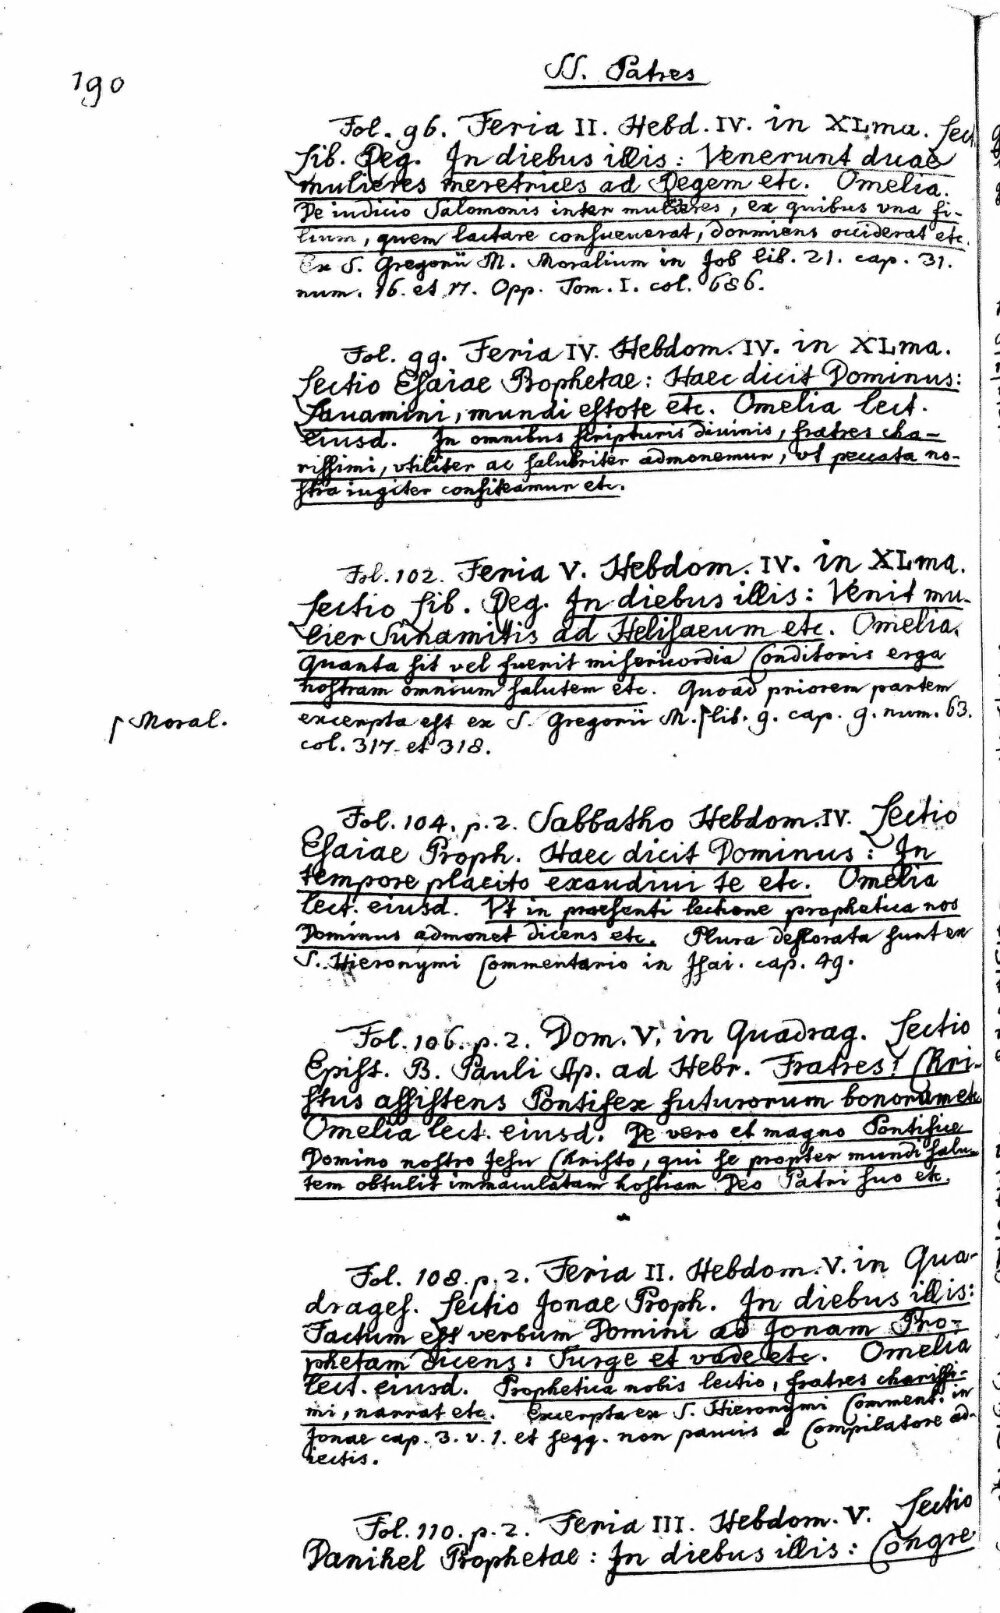 190
SS. Patres
Fol. 96. Feria II. Hebd. IV. in XLma. Lect.
Lib. Reg. In diebus illis: Venerunt duae
mulieres meretrices ad Regem etc. Omelia.
De iudicio Salomonis inter mulieres, ex quibus vna fi-
lium, quem lactare consueuerat, dormiens occiderat etc.
Ex S. Gregorii M. Moralium in Job lib. 21. cap. 31.
num. 16. et 17. Opp. Tom. I. col. 686.
Fol. 99. Feria IV. Hebdom. IV. in XLma.
Lectio Esaiae Prophetae: Haec dicit Dominus:
Lauamini, mundi estote etc. Omelia lect.
eiusd. In omnibus scripturis diuinis, fratres cha-
rissimi, vtiliter ac salubriter admonemur, vt peccata no-
stra iugiter confiteamur etc.
Fol. 102. Feria V. Hebdom. IV. in XLma.
Lectio Lib. Reg. In diebus illis: Venit mu-
lier Sunamitis ad Helisaeum etc. Omelia.
Quanta sit vel fuerit misericordia Conditoris erga
nostram omnium salutem etc. Quoad priorem partem
excerpta est ex S. Gregorii M. ſ lib. 9. cap. 9. num. 63.
ſ Moral.
col. 317. et 318.
Fol. 104. p. 2. Sabbatho Hebdom. IV. Lectio
Esaiae Proph. Haec dicit Dominus: In
tempore placito exaudiui te etc. Omelia
lect. eiusd. Vt in praesenti lectione prophetica nos
Dominus admonet dicens etc. Plura deflorata sunt ex
S. Hieronymi Commentario in Isai. cap. 49.
Fol. 106. p. 2. Dom. V. in Quadrag. Lectio
Epist. B. Pauli Ap. ad Hebr. Fratres! Chri-
stus assistens Pontifex futurorum bonorum etc.
Omelia lect. eiusd. De vero et magno Pontifice
Domino nostro Jesu Christo, qui se propter mundi salu-
tem obtulit immaculatam hostiam Deo Patri suo etc.
Fol. 108. p. 2. Feria II. Hebdom. V. in Qua-
drages. Lectio Jonae Proph. In diebus illis:
Factum est verbum Domini ad Jonam Pro-
phetam dicens: Surge et vade etc. Omelia
lect. eiusd. Prophetica nobis lectio, fratres charissi-
mi, narrat etc. Excerpta ex S. Hieronymi Comment. in
Jonae cap. 3. v. 1. et seqq. non paucis a Compilatore ad-
iectis.
Fol. 110. p. 2. Feria III. Hebdom. V. Lectio
Danihel Prophetae: In diebus illis: Congre